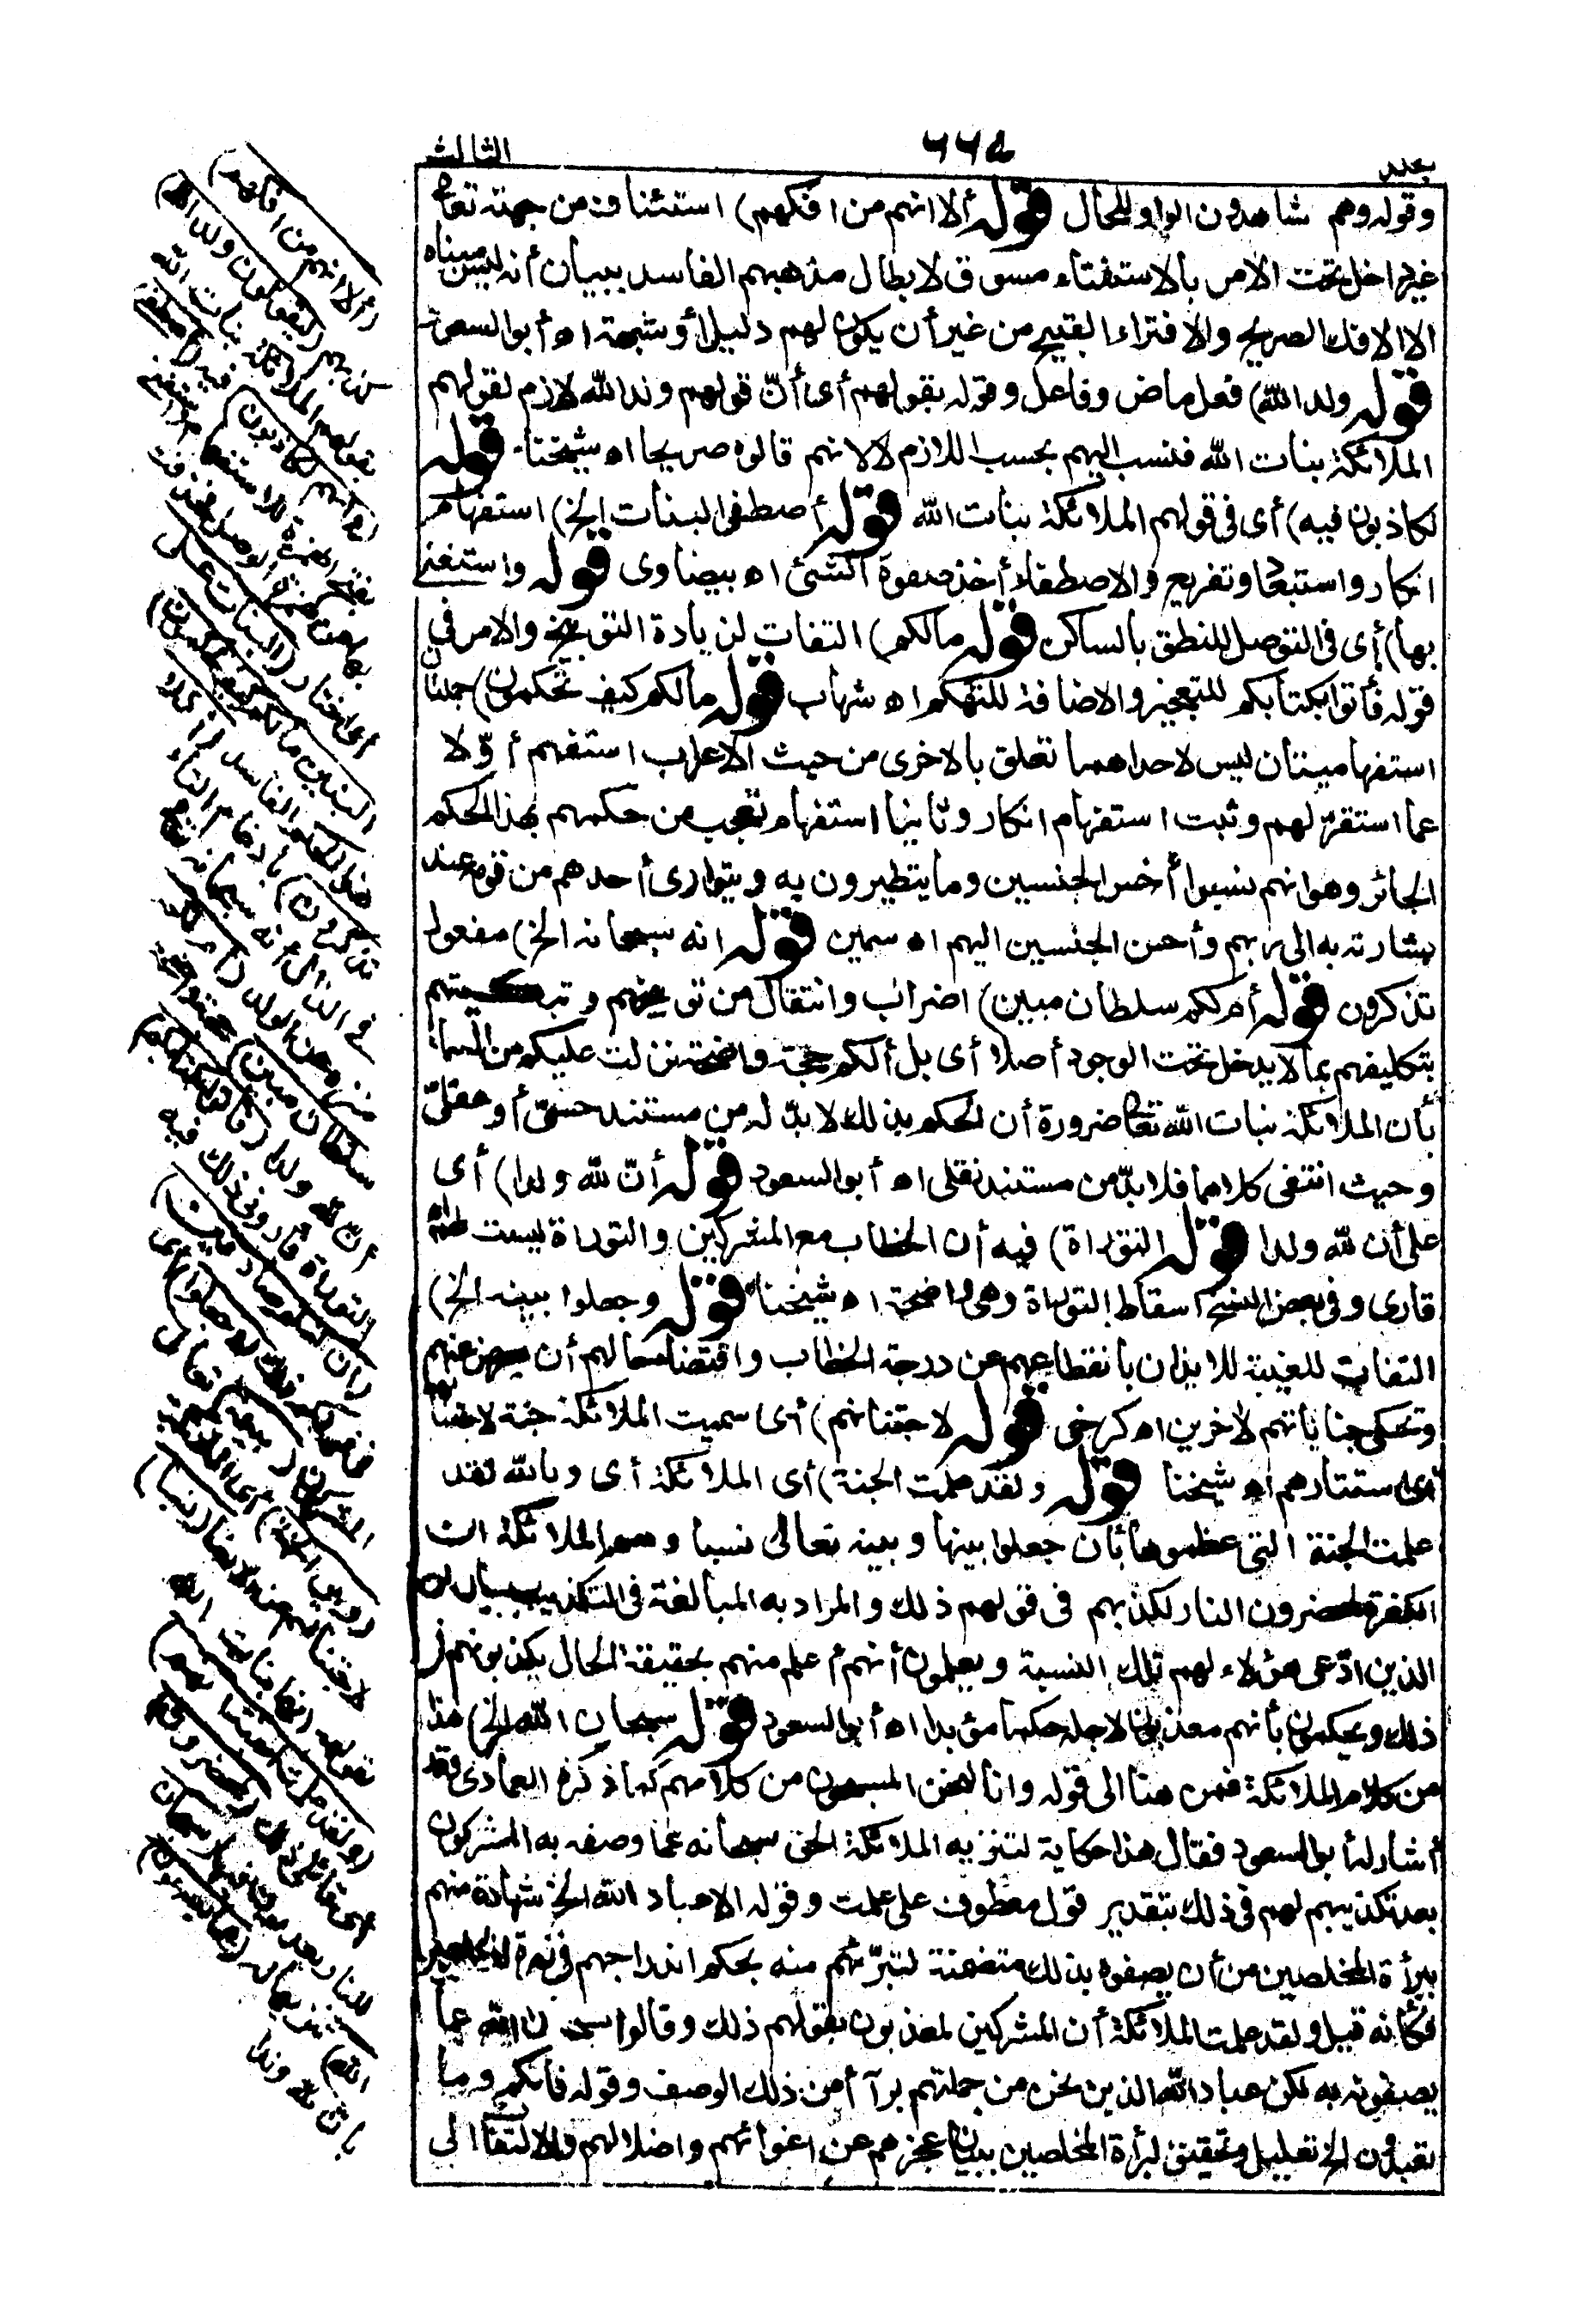 مجلد ٦٦٥ الثالث
وقوله وهم شاهدون الواو للحال قوله ألا انهم من افكهم) استئناف من جهته تعا
غير داخل تحت الامر بالاستفتاء مسوق لابطال مذهبهم الفاسد ببيان أنه ليس مبناه
الا الافك الصريح والافتراء القبيح من غير أن يكون لهم دليل أو شبهة اه أبو السعود
قوله ولد الله) فعل ماض وفاعل وقوله بقولهم أى أنّ قولهم ولد الله لازم لقولهم
الملائكة بنات الله فنسب اليهم بحسب اللازم لا لانهم قالوه صريحا اه شيخنا قوله
لكاذبون فيه) أى فى قولهم الملائكة بنات الله قوله أصطفى البنات الخ) استفهام
انكار واستبعاد وتقريع والاصطفاء أخذ صفوة الشئ اه بيضاوى قوله واستغنى
بها) أى فى التوصل للنطق بالساكن قوله مالكم) التفات لزيادة التوبيخ والامر في
قوله فأتوا بكتابكم للتعجيز والاضافة للتهكم اه شهاب قوله مالكم كيف تحكمون) جملتان
استفهاميتان ليس لاحداهما تعلق بالاخرى من حيث الاعراب استفهم أوّلا
عما استقرّ لهم وثبت استفهام انكار وثانيا استفهام تعجب من حكمهم بهذا الحكم
الجائر وهو انهم نسبوا أخس الجنسين وما يتطيرون به ويتوارى أحدهم من قومه عند
بشارته به الى ربهم وأحسن الجنسين اليهم اه سمين قوله انه سبحانه الخ) مفعول
تذكرون قوله أم لكم سلطان مبين) اضراب وانتقال من توبيخهم وتبكيتهم
بتكليفهم بما لا يدخل تحت الوجود أصلا أى بل ألكم حجة واضحة نزلت عليكم من السماء
بأن الملائكة بنات الله تعا ضرورة أن الحكم بذلك لا بدّ له من مستند حسىّ أو عقلىّ
وحيث انتفى كلاهما فلا بدّ من مستند نقلى اه أبو السعود قوله أنّ لله ولدا) أى
على أن لله ولدا قوله التوراة) فيه أن الخطاب مع المشركين والتوراة ليست لهم اه
قارى وفى بعض النسخ اسقاط التوراة وهى واضحة اه شيخنا قوله وجعلوا بينه الخ)
التفات للغيبة للايذان بانقطاعهم عن درجة الخطاب واقتضاء حالهم أن يعرض عنهم
وتحكى جناياتهم لآخرين اه كرخى قوله لاجتنانهم) أى سميت الملائكة جنة لاجتنانهم
أى استتارهم اه شيخنا قوله ولقد علمت الجنة) أى الملائكة أى وبالله لقد
علمت الجنة التى عظموها بأن جعلوا بينها وبينه تعالى نسبا وهم الملائكة ان
الكفرة لمحضرون النار لكذبهم فى قولهم ذلك والمراد به المبالغة فى التكذيب ببيان أن
الذين ادّعى هؤلاء لهم تلك النسبة ويعلمون أنهم أعلم منهم بحقيقة الحال يكذبونهم فى
ذلك ويحكمون بأنهم معذبون لاجله حكما مؤبدا اه أبو السعود قوله سبحان الله الخ) هذا
من كلام الملائكة فمن هنا الى قوله وانا لنحن المسبحون من كلامهم كما ذكره العمادى فقد
أشار له أبو السعود فقال هذا حكاية لتنزيه الملائكة الحق سبحانه عما وصفه به المشركون
بعد تكذيبهم لهم فى ذلك بتقدير قول معطوف على علمت وقوله الا عباد الله الخ شهادة منهم
ببرأة المخلصين من أن يصفوه بذلك متضمنة لتبرّئهم منه بحكم اندراجهم فى زمرة المخلصين
فكأنه قيل ولقد علمت الملائكة أن المشركين لمعذبون بقولهم ذلك وقالوا سبحان الله عما
يصفونه به لكن عباد الله الذين نحن من جملتهم برآء من ذلك الوصف وقوله فانكم وما
تعبدون الخ تعليل وتحقيق لبرأة المخلصين ببيان عجزهم عن اغوائهم واضلالهم والالتفات الى
(ألا انهم من افكهم)
كذبهم (ليقولون ولد الله)
بقولهم الملائكة بنات الله
(وانهم لكاذبون) فيه (أصطفى)
بفتح الهمزة للاستفهام واستغنى
بها عن همزة الوصل فحذفت
أى اختار (البنات على
البنين مالكم كيف تحكمون)
هذا الحكم الفاسد (أفلا
تذكرون) بادغام التاء
فى الذال أنه سبحانه تعالى
منزه عن الولد (أم لكم
سلطان مبين) حجة واضحة
أن لله ولدا (فأتوا بكتابكم)
التوراة فأرونى ذلك فيه
(ان كنتم صادقين)
فى قولكم ذلك (وجعلوا) أى
المشركون (بينه) تعالى
(وبين الجنة) أى الملائكة
لاجتنانهم عن الابصار (نسبا)
بقولهم انها بنات الله
(ولقد علمت الجنة انهم)
أى قائلى ذلك (لمحضرون)
للنار يعذبون فيها (سبحان
الله) تنزيها له (عما يصفون)
بأن لله ولدا